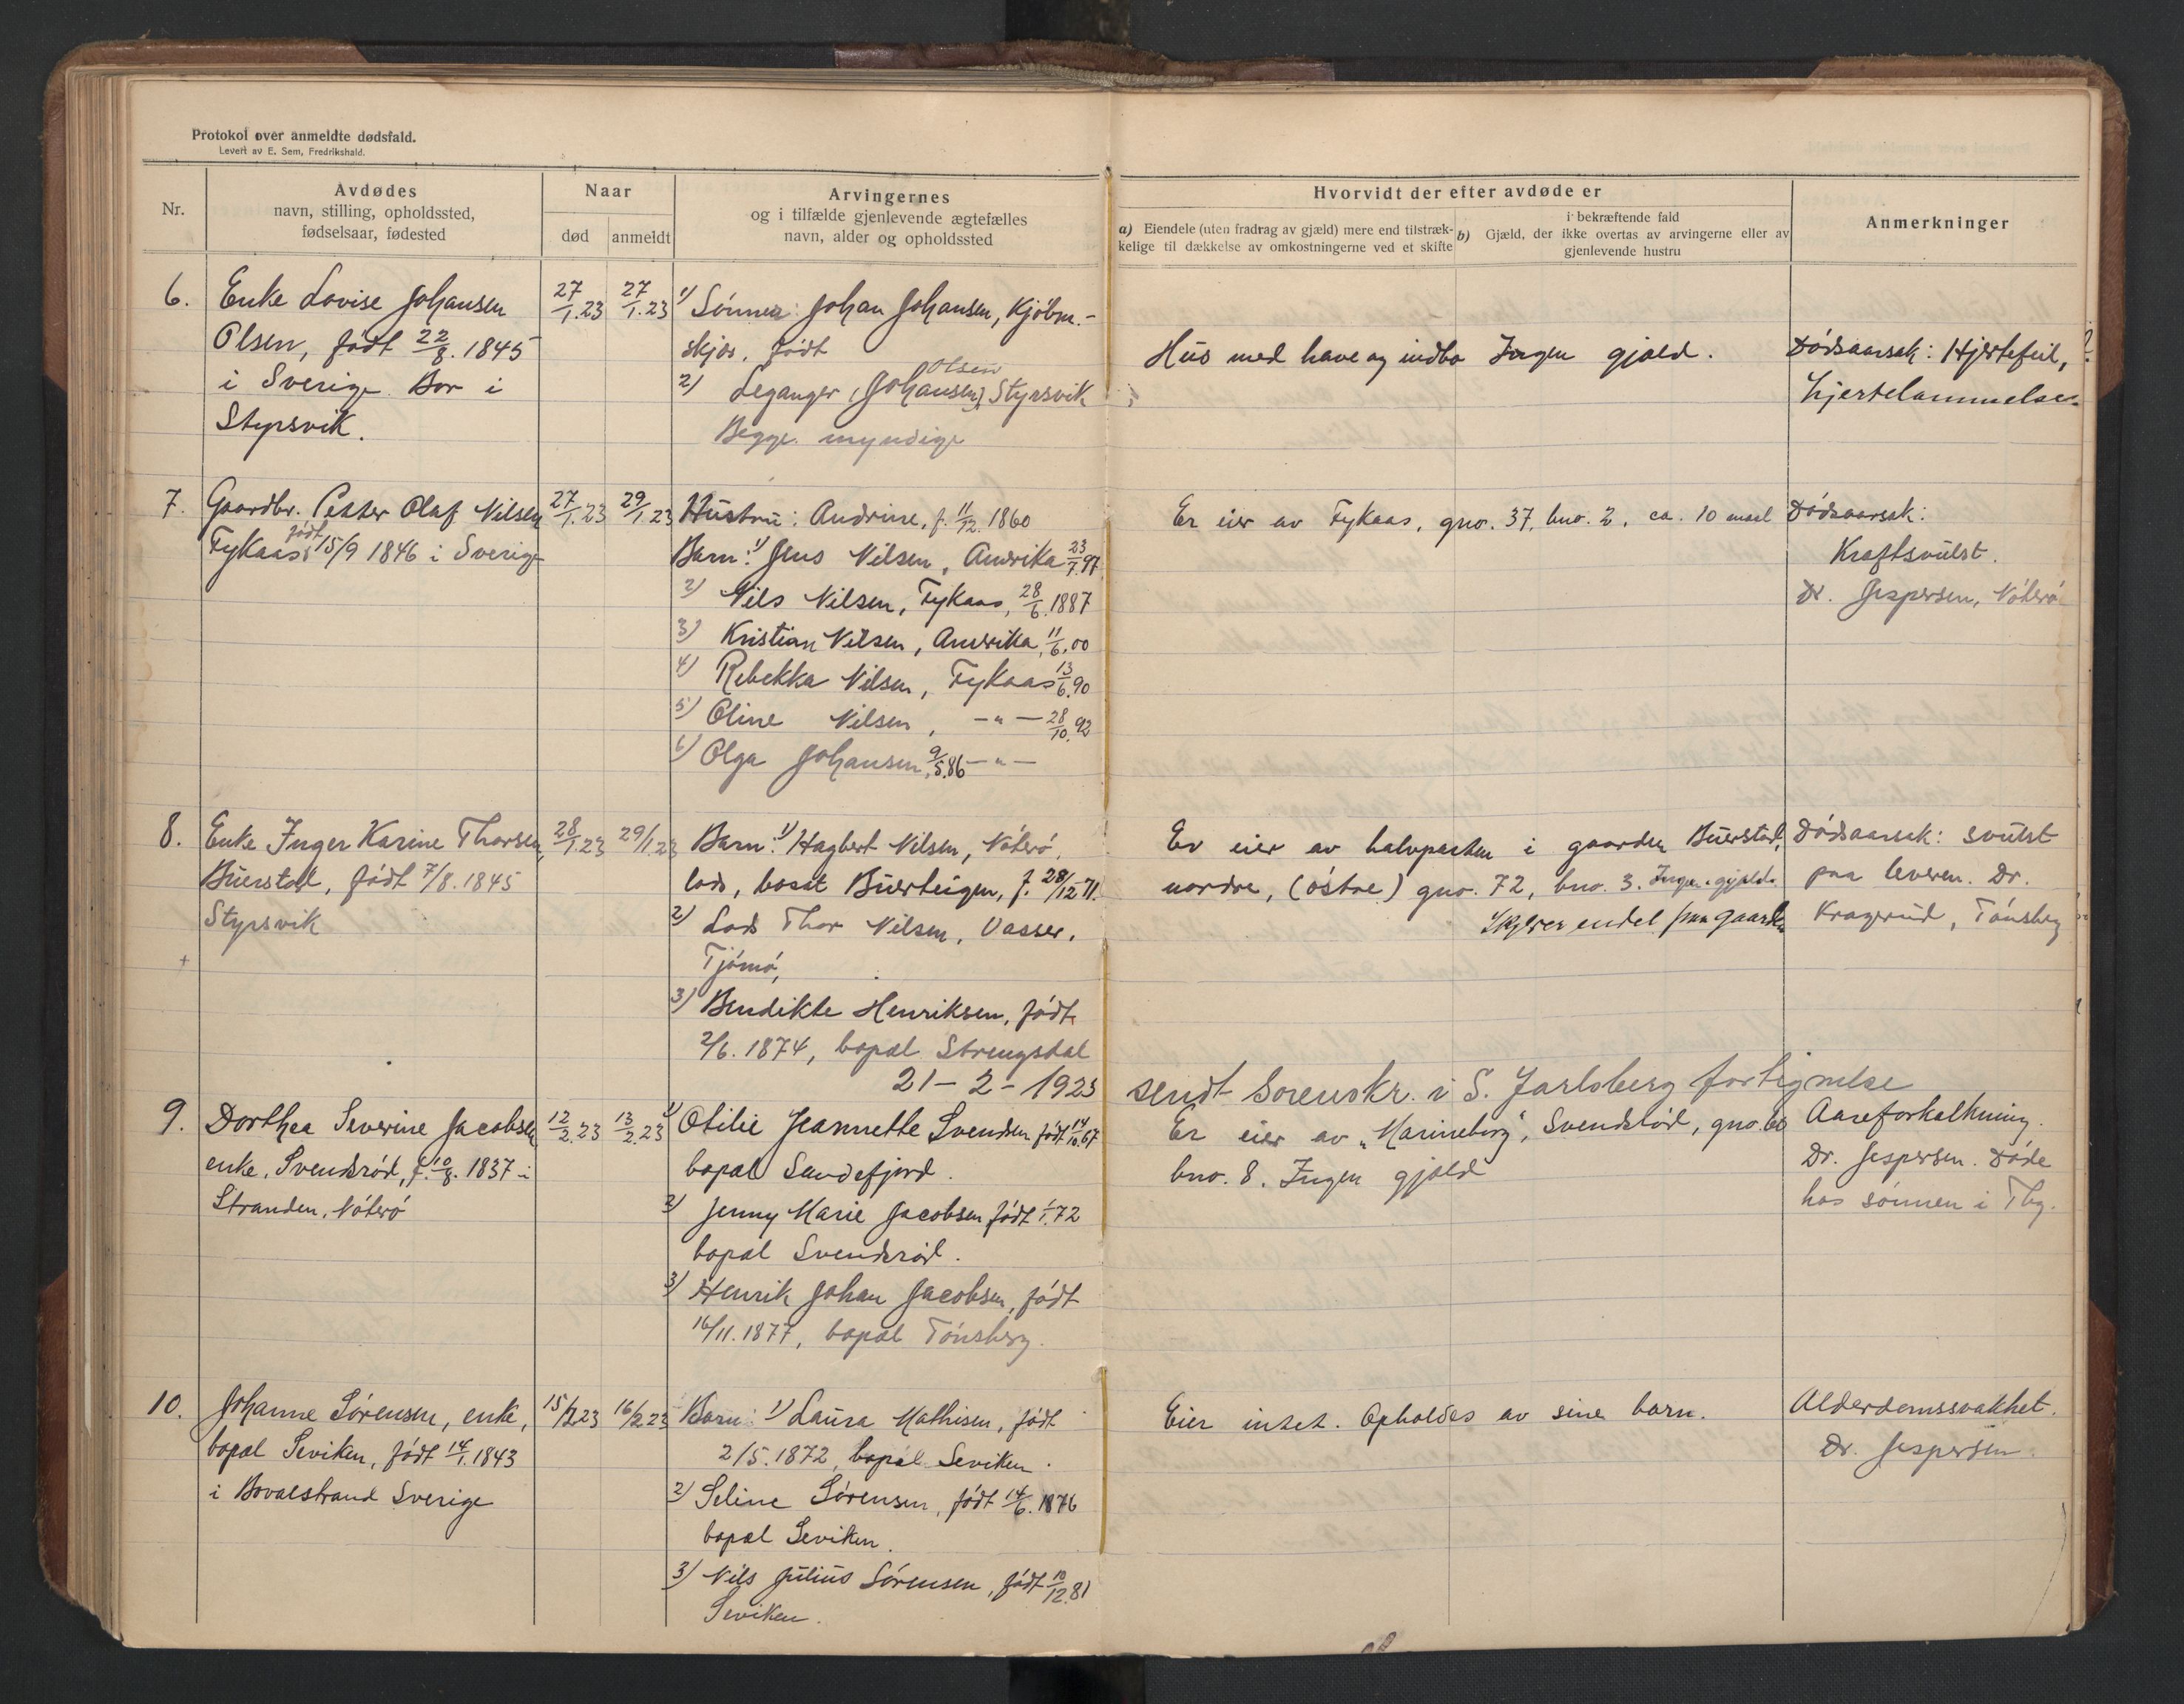 Protokol over anmeldte dødsfald.
Levert av E. Sem, Fredrikshald.
Nr.
Avdødes
navn, stilling, opholdssted,
fødselsaar, fødested
Naar
død
anmeldt
Arvingernes
og i tilfælde gjenlevende ægtefælles
navn, alder og opholdssted
Hvorvidt der efter avdøde er
a) Eiendele (uten fradrag av gjæld) mere end tilstræk-
kelige til dækkelse av omkostningerne ved et skifte
i bekræftende fald
b) Gjæld, der ikke overtas av arvingerne eller av
gjenlevende hustru
Anmerkninger
6.
Enke Lovise Johansen
Olsen, født 22/8. 1845
i Sverige Bor i
Styrsvik.
27/1.23
27/1.23
1) Sønner: Johan Johansen, Kjøbm.-
skjær, født
Olsen
2) Leganger (Johansen), Styrsvik
Begge myndige
Hus med have og indbo Ingen gjæld.
Dødsaarsak: Hjertefeil,
hjertelammelse.
7.
Gaardbr. Petter Olaf Nilsen
født
Fykaas 15/9 1846 i Sverige
27/1.23
29/1.23
Hustru: Andrine, f. 11/12. 1860
Barn: 1) Jens Nilsen, Amerika 23/7.97
2) Nils Nilsen, Fykaas, 28/6. 1887
3) Kristian Nilsen, Amerika, 11/6.00
4) Rebekka Nilsen, Fykaas 13/6.90
5) Oline Nilsen, -"- 28/10.92
6) Olga Johansen, 9/5.86 -"-
Er eier av Fykaas, gno. 37, bno. 2, ca. 10 maal
Dødsaarsak:
Kræftsvulst.
Dr. Jespersen, Nøterø
8.
Enke Inger Karine Thorsen,
Buerstad, født 7/8. 1845
Styrsvik
+
28/1.23
29/1.23
Barn: 1) Hagbert Nilsen, Nøterø,
lods, bosat Buerteigen, f. 28/12 71.
2) Lods Thor Nilsen, Vasser,
Tjømø,
3) Bendikte Henriksen, født
2/6. 1874, bopæl Strengsdal
Er eier av halvparten i gaarden Buerstad,
nordre, (østre) gno. 72, bno. 3. Ingen gjæld.
Skylder endel paa gaarden
Dødsaarsak: svulst
paa leveren. Dr.
Kragerud, Tønsberg
21-2-1923 sendt Sorenskr. i S. Jarlsberg fortegnelse
9.
Dorthea Severine Jacobsen
enke, Svendsrød, f. 10/8. 1837 i
Stranden, Nøterø
12/2.23
13/2.23
1) Otilie Jeannette Svendsen født 14/10 67
bopæl Sandefjord.
2) Jenny Marie Jacobsen født 1/1.72
bopæl Svendsrød.
3) Henrik Johan Jacobsen, født
16/11. 1877, bopæl Tønsberg.
Er eier av "Marineborg", Svendsrød, gno. 60
bno. 8. Ingen gjæld
Aareforkalkning.
Dr. Jespersen. Døde
hos sønnen i Tbg.
10.
Johanne Sørensen, enke,
bopæl Seviken, født 14/1. 1843
i Bovalstrand Sverige
15/2.23
16/2.23
Barn: 1) Laura Mathisen, født
2/5. 1872, bopæl Seviken.
2) Seline Sørensen, født 14/6. 1876
bopæl Seviken.
3) Nils Julius Sørensen, født 10/12.81
Seviken.
Eier intet. Opholdes av sine barn.
Alderdomssvakhet.
Dr. Jespersen.